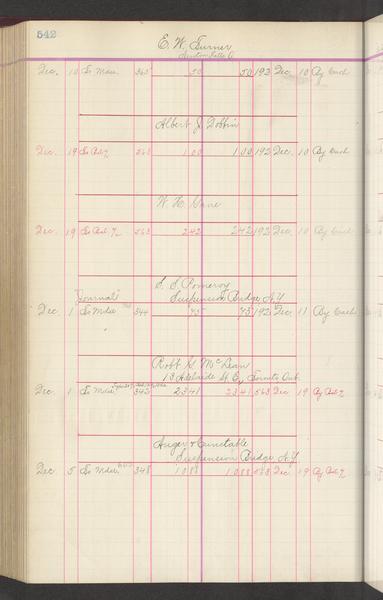 542
E. W. Turner
Dec. 10 To Mdse. 365 50 50 192 Dec. 10 By Cash
Albert J. Dobbin
Dec. 19 To Bal. 563 100 100 192 Dec. 10 By Cash
W. H.
Dec. 19 To Bal. 563 242 242 192 Dec. 10 By Cash
S. S. Pomeroy
Suspension Bridge N.Y.
"Journal"
Dec. 1 To Mdse 344 75 75 192 Dec. 11 By Cash
Robt. G. McLean
13 Adelaide St. E., Toronto Ont.
Dec. 1 To Mdse. 343 2341 2341 563 Dec. 19 By Bal.
Anger & Constable
Suspension Bridge N.Y.
Dec. 5 To Mdse. 348 1088 1088 563 Dec. 19 By Bal.